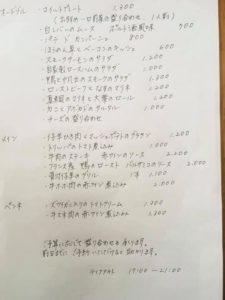 オードブル ・コイルドプレート 1,300
(当別の一口前菜の盛り合わせ 1人前)
・白レバーのムース ポルト酒風味 900
・パテ ド カンパーニュ 800
・ほうれん草とベーコンのキッシュ 600
・スモークサーモンのサラダ 1,200
・自家製ロースハムのサラダ 1,000
・鴨と砂肝のスモークのサラダ 1,300
・ローストビーフとなすのマリネ 1,300
・のロール 1,200
・カニとアボカドのタルタル 1,000
・チーズの盛り合わせ
メイン ・仔羊ひき肉とマッシュポテトのグラタン 1,200
・トリッパのトマト煮込み 1,000
・牛肉のステーキ 赤ワインのソース 2,200
・フランス産 鴨のロースト バルサミコのソース 2,800
・骨付仔羊のグリル 1本 1,100
・牛ホホ肉の赤ワイン煮込み 2,000
ペンネ ・ズワイガニのトマトクリーム 1,300
・牛すね肉の赤ワイン煮込み 1,300
ご予算に応じて盛り合わせも承ります。
前日までにご予約いただけると助かります。
テイクアウト 17:00~21:00